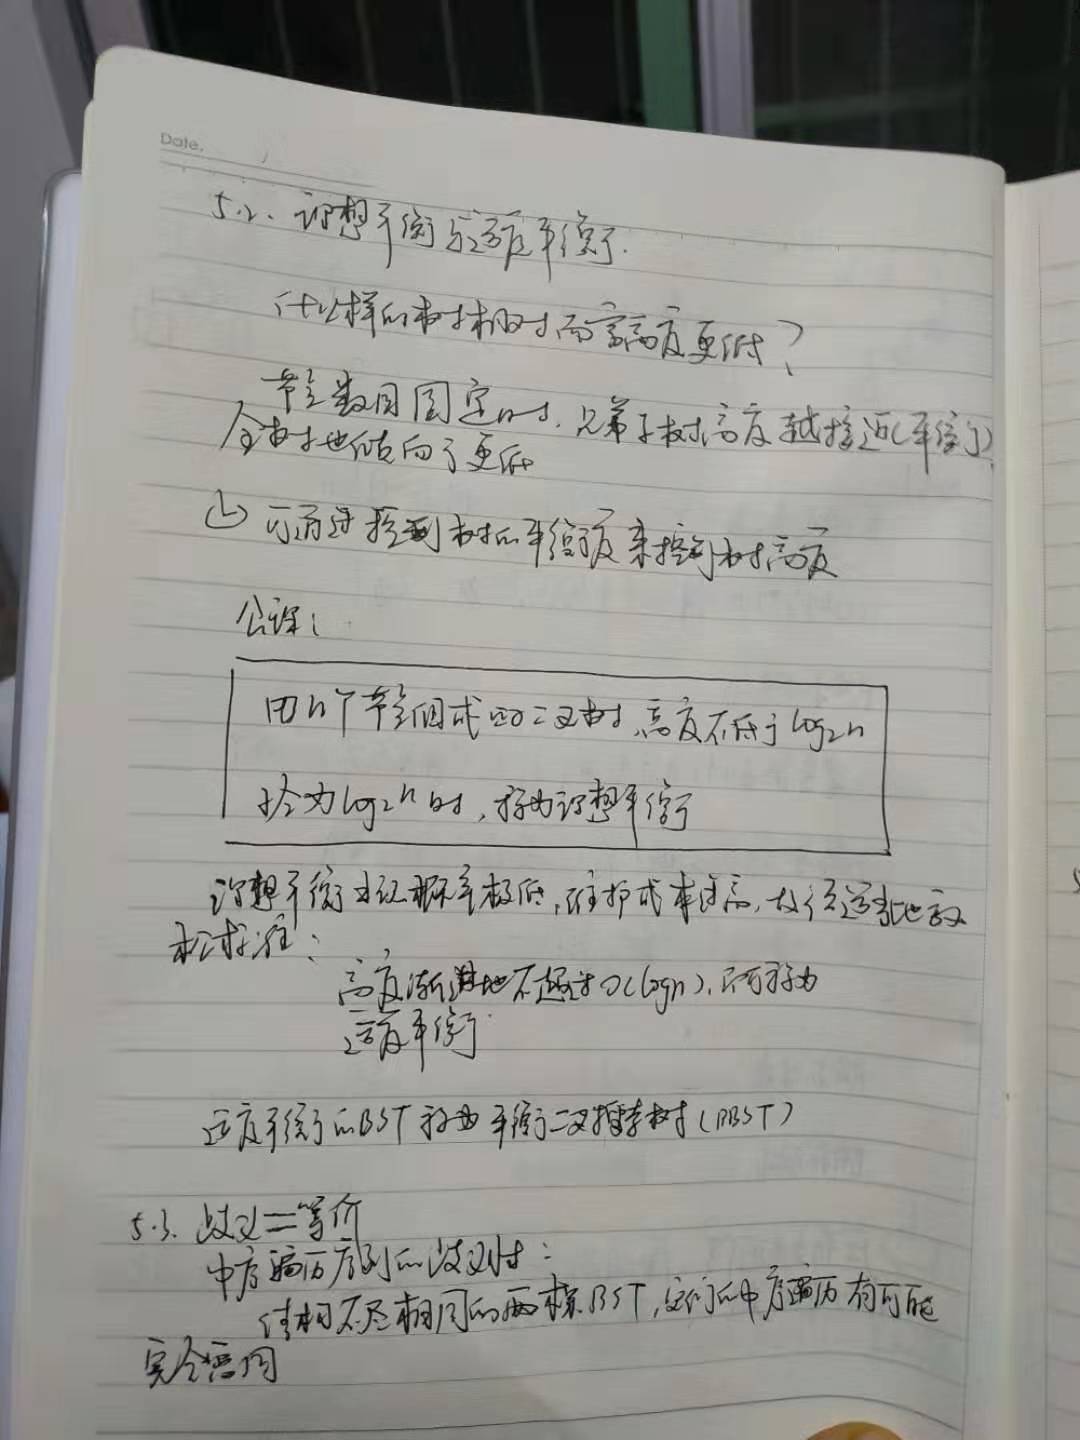 Date.
5.2. 理想平衡与适度平衡.
什么样的树相对而言高度更低?
节点数目固定时, 兄弟子树高度越接近(平衡)
全树也倾向于更低
可通过控制树的平衡度来控制树高度
公课:
由n个节点组成的二叉树,高度不低于log₂n
恰为log₂n时,称为理想平衡
理想平衡出现概率极低,维护成本过高,故须适当地放
松标准:
高度渐进地不超过O(logn),即可称为
适度平衡.
适度平衡的BST称为平衡二叉搜索树(BBST)
5.3. 歧义=等价
中序遍历序列的歧义性:
结构不尽相同的两棵BST,它们的中序遍历有可能
完全雷同